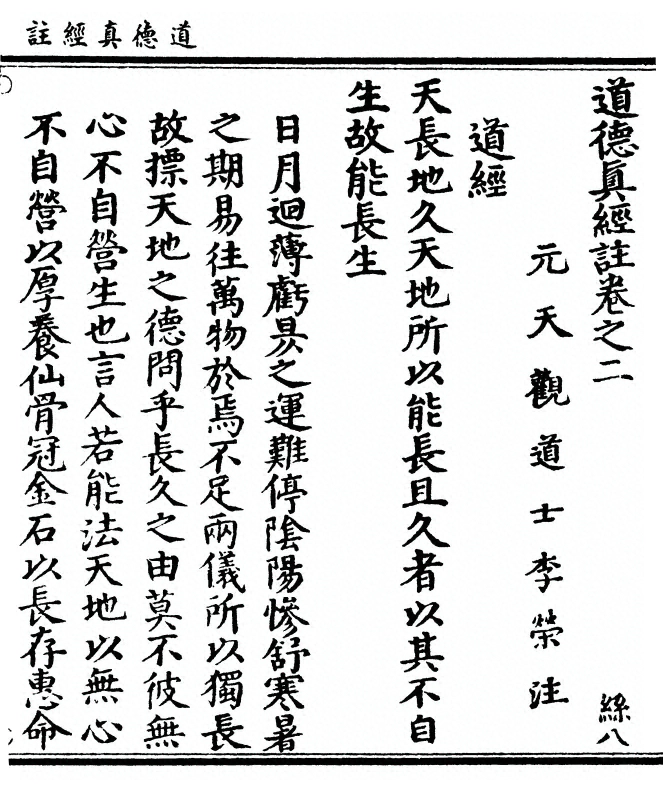 道德真經註
道德眞經註卷之二
絲八
元天觀道士李榮注
道經
天長地久天地所以能長且久者以其不自
生故能長生
日月迴薄虧昃之運難停陰陽慘舒寒暑
之期易往萬物於焉不足兩儀所以獨長
故摽天地之德問乎長久之由莫不彼無
心不自營生也言人若能法天地以無心
不自營以厚養仙骨冠金石以長存惠命